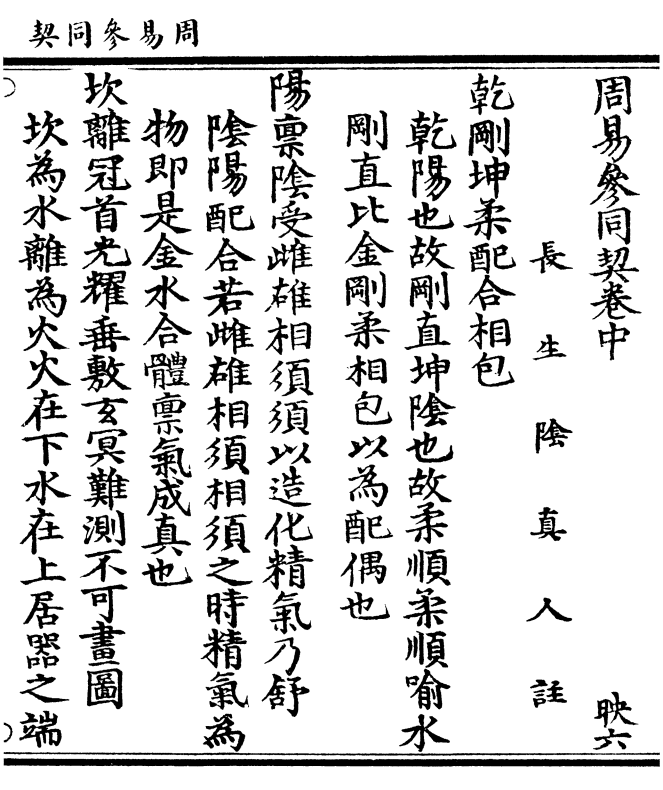 周易參同契
周易參同契卷中 映六
長生陰真人註
乾剛坤柔配合相包
乾陽也故剛直坤陰也故柔順柔順喻水
剛直比金剛柔相包以為配偶也
陽禀陰受雌雄相須須以造化精氣乃舒
陰陽配合若雌雄相須相須之時精氣為
物即是金水合體禀氣成真也
坎離冠首光耀垂敷玄冥難測不可畫圖
坎為水離為火火在下水在上居器之端